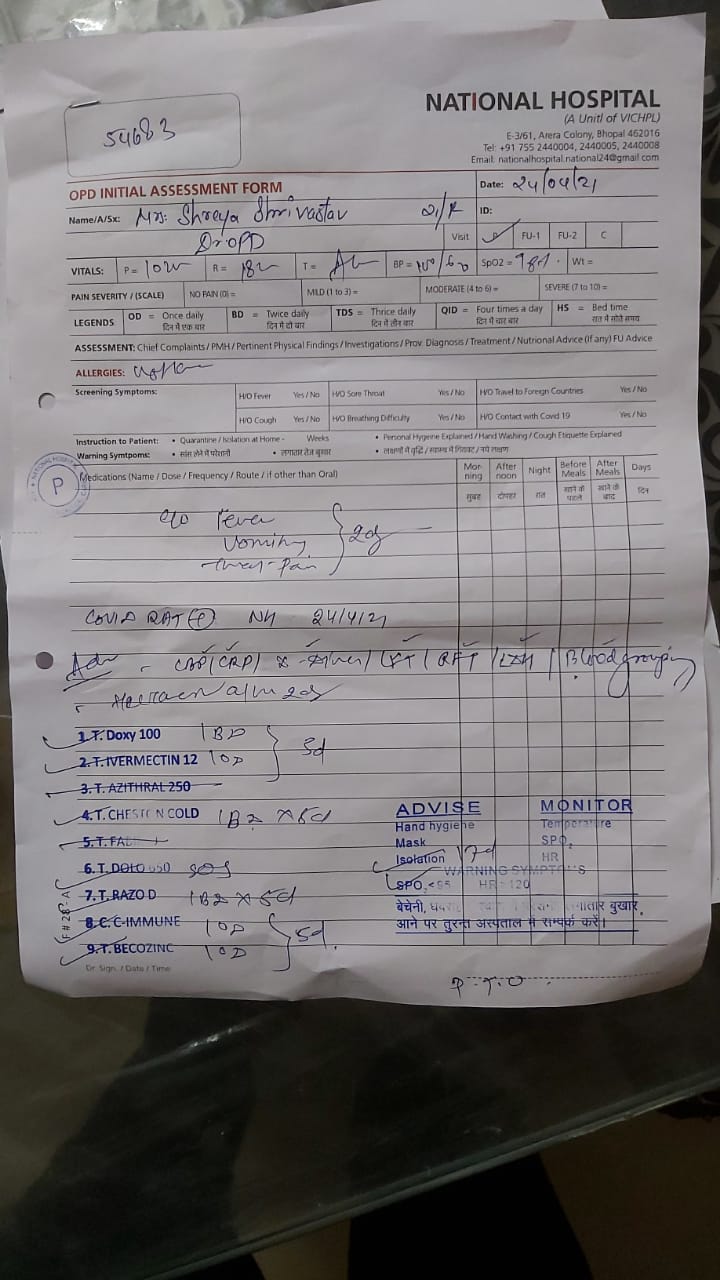 54683
NATIONAL HOSPITAL
(A Unitl of VICHPL)
E-3/61, Arera Colony, Bhopal 462016
Tel: +91 755 2440004, 2440005, 2440008
Email: nationalhospital.national24@gmail.com
OPD INITIAL ASSESSMENT FORM
Date: 24/04/21
Name/A/Sx: Mrs. Shreya Shrivastav
ID:
Dr OPD
Visit FU-1 FU-2 C
VITALS: P= R= 18 T= BP= 100/60 SpO2= 98% Wt=
PAIN SEVERITY / (SCALE) NO PAIN (0)= MILD (1 to 3)= MODERATE (4 to 6)= SEVERE (7 to 10)=
LEGENDS OD = Once daily दिन में एक बार BD = Twice daily दिन में दो बार TDS = Thrice daily दिन में तीन बार QID = Four times a day दिन में चार बार HS = Bed time रात में सोते समय
ASSESSMENT: Chief Complaints / PMH / Pertinent Physical Findings / Investigations / Prov. Diagnosis / Treatment / Nutrional Advice (If any) FU Advice
ALLERGIES:
Screening Symptoms:
H/O Fever Yes / No H/O Sore Throat Yes / No H/O Travel to Foreign Countries Yes / No
H/O Cough Yes / No H/O Breathing Difficulty Yes / No H/O Contact with Covid 19 Yes / No
Instruction to Patient: • Quarantine / Isolation at Home - Weeks • Personal Hygeine Explained / Hand Washing / Cough Etiquette Explained
Warning Symtpoms: • सांस लेने में परेशानी • लगातार तेज बुखार • लक्षणों में वृद्धि / स्वास्थ्य में गिरावट / नये लक्षण
P
Medications (Name / Dose / Frequency / Route / if other than Oral)
Mor-ning After noon Night Before Meals After Meals Days
सुबह दोपहर रात खाने के पहले खाने के बाद दिन
c/o Fever
Vomiting
2d
COVID RAT (+) NH 24/4/21
Adv - CBP/CRP/ /LFT/RFT/LDH/Blood grouping
1.T. Doxy 100 1 BD
2.T.IVERMECTIN 12 1 OD
5d
3.T. AZITHRAL 250
4.T. CHESTON COLD 1 BD x 5d
5.T. FAB
6.T. DOLO 650 SOS
7.T. RAZO D 1 BD x 5d
8.C. C-IMMUNE 1 OD
9.T. BECOZINC 1 OD
5d.
ADVISE
Hand hygiene
Mask
Isolation 17d
MONITOR
Temperature
SPO2
HR
WARNING SYMPTOMS
SPO2<95 HR>120
बेचैनी, लगातार बुखार,
आने पर तुरन्त अस्पताल में सम्पर्क करें।
Dr. Sign. / Date / Time
P.T.O.